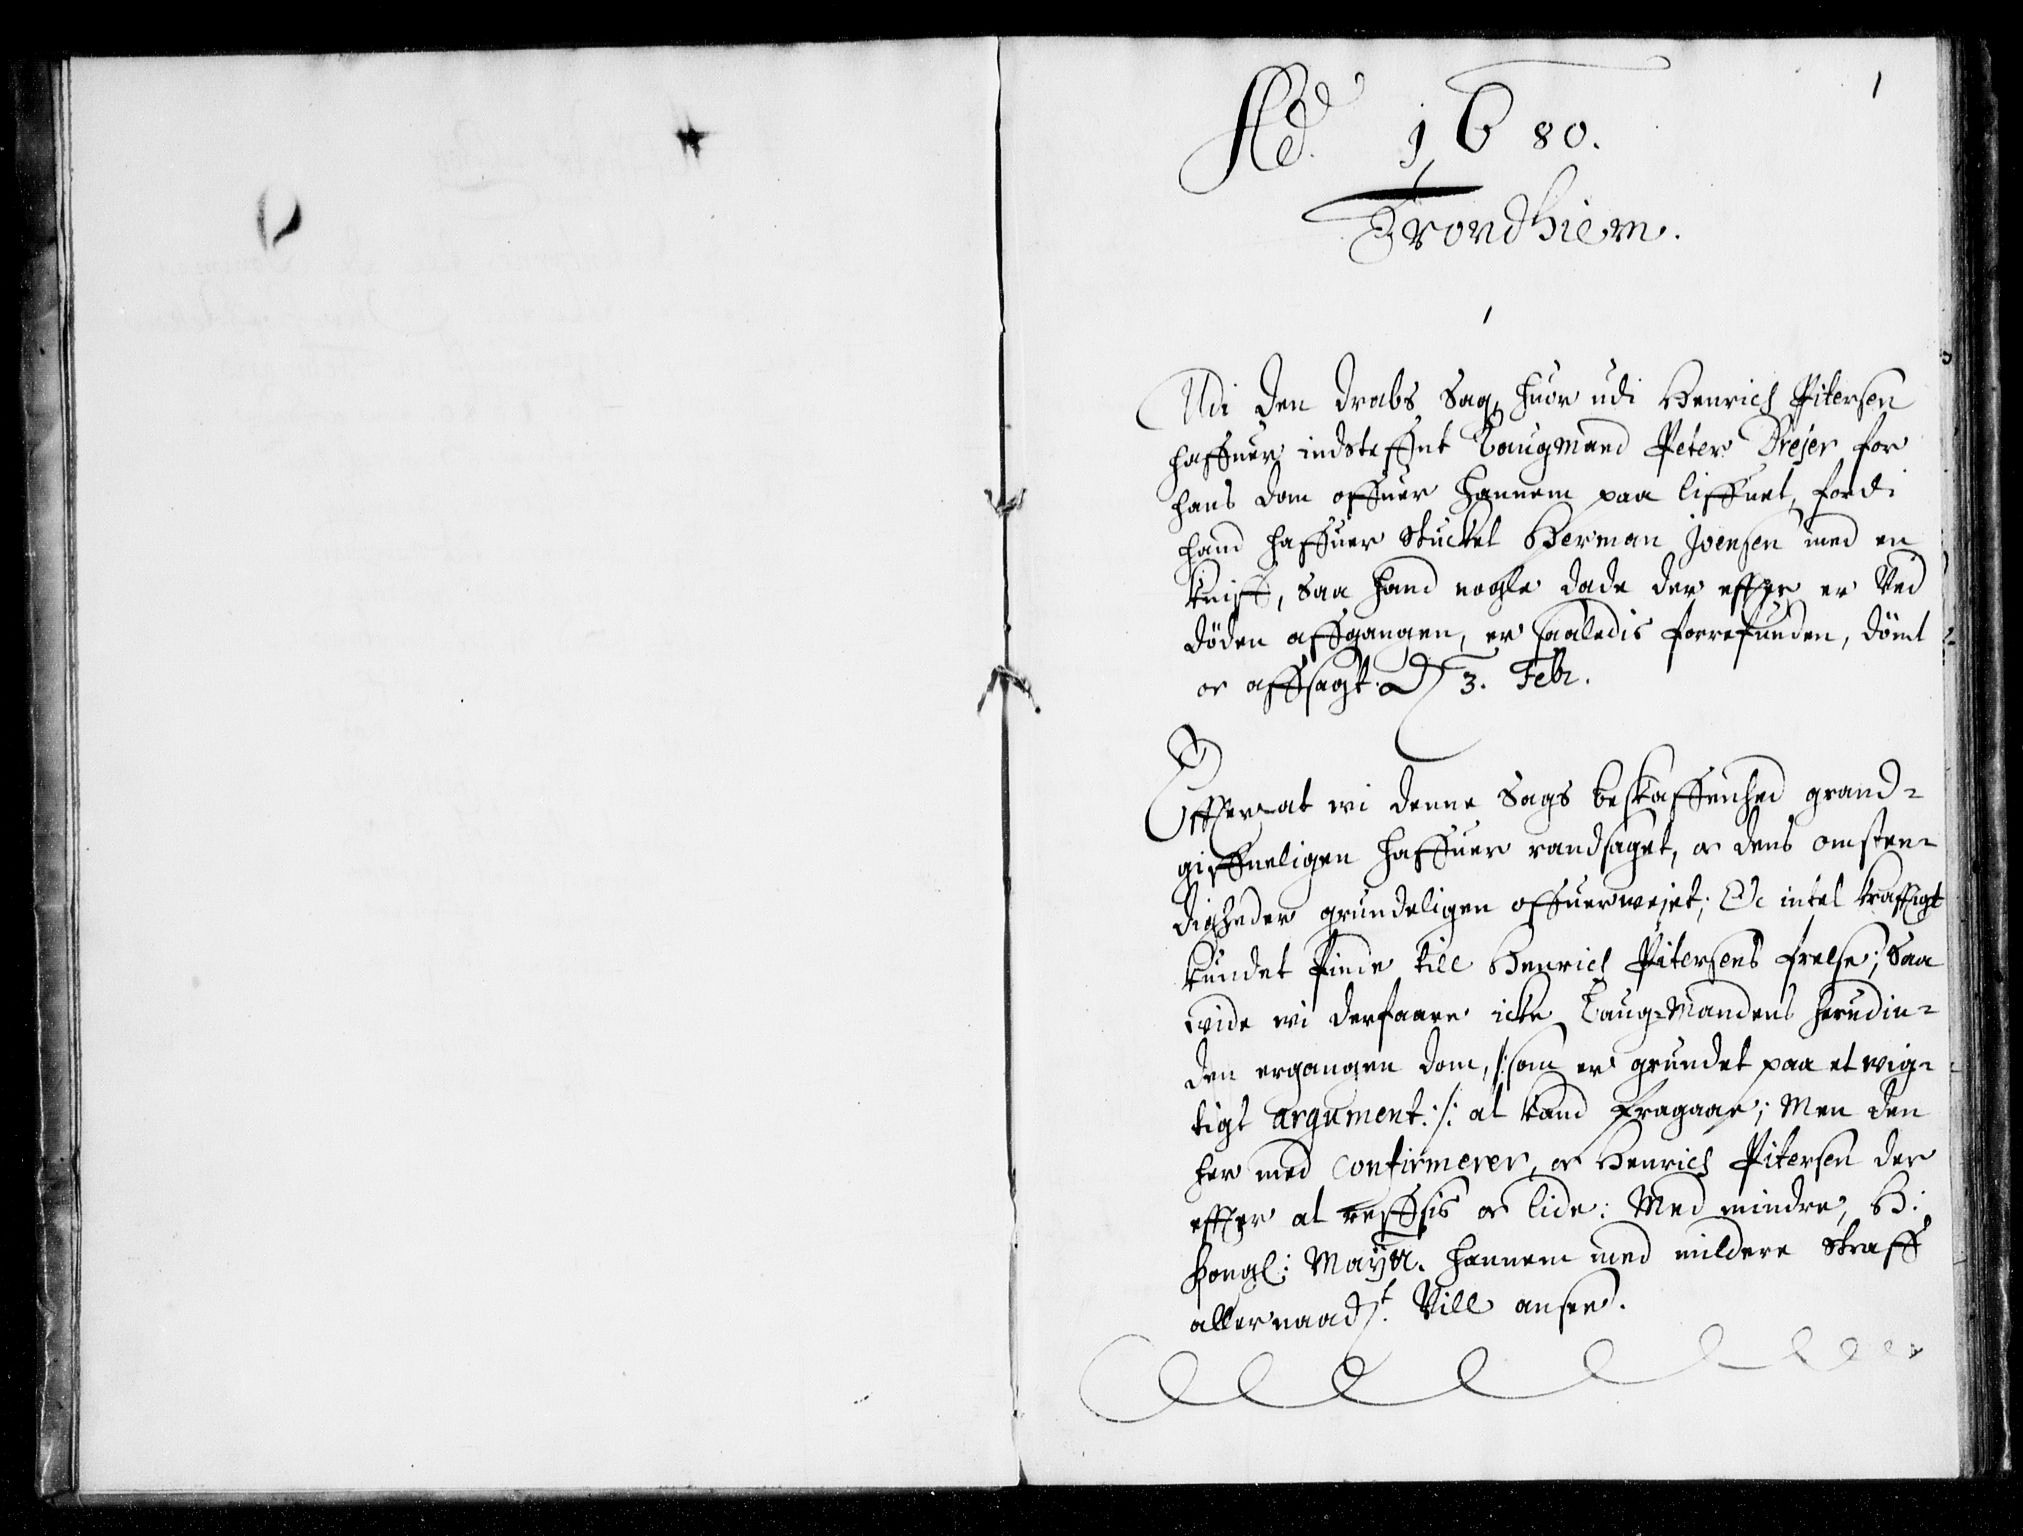 1
Ad. 1680.
Trondhiem.
1
Udi den drabs Sag, huor udi Henrich Pitersen
haffuer indsteffnt Laugmand Peter Drejer for
hans dom offuer hannem paa liffuet, fordi
hand haffuer stucket Herman Joensen med en
kniff, saa hand nogle dage der effter er Ved
döden affgangen, er saaledis forrefunden, dömt
oc affsagt d. 3. Febr.
Efftter at wi denne Sags beskaffenhed grand-
giffueligen haffuer randsaget, oc dens omsten-
digheder grundeligen offuerwejet; Oc intet krafftigt
kundet finde till Henrich Pitersens frelse; Saa
wide wi derfaare icke Laug-Mandens herudin-
den ergangen dom, /: som er grundet paa et wig-
tigt argument :/: at kand fragaae; Men den
her med confirmerer, oc Henrich Pitersen der
effter at reffsis oc lide: Med mindre, H:
Kongl: Mayst. hannem med mildere straff
allernaadst. Vill ansee.